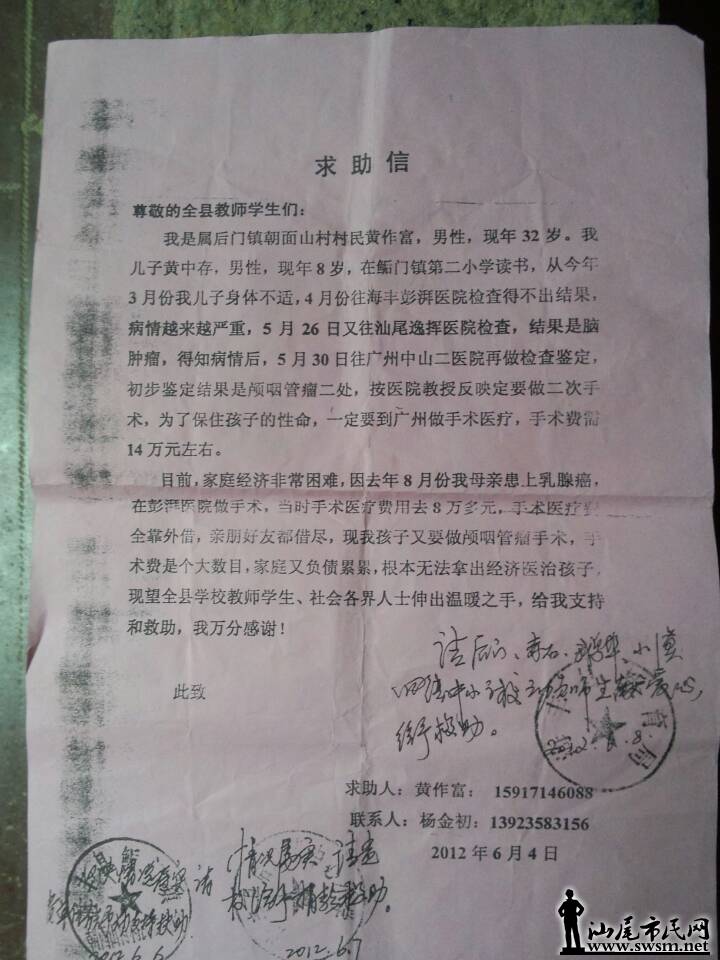 求助信
尊敬的全县教师学生们：
我是属后门镇朝面山村村民黄作富，男性，现年32岁。我
儿子黄中存，男性，现年8岁，在鲘门镇第二小学读书，从今年
3月份我儿子身体不适，4月份往海丰彭湃医院检查得不出结果，
病情越来越严重，5月26日又往汕尾逸挥医院检查，结果是脑
肿瘤，得知病情后，5月30日往广州中山二医院再做检查鉴定，
初步鉴定结果是颅咽管瘤二处，按医院教授反映定要做二次手
术，为了保住孩子的性命，一定要到广州做手术医疗，手术费需
14万元左右。
目前，家庭经济非常困难，因去年8月份我母亲患上乳腺癌，
在彭湃医院做手术，当时手术医疗费用去8万多元，手术医疗费
全靠外借，亲朋好友都借尽，现我孩子又要做颅咽管瘤手术，手
术费是个大数目，家庭又负债累累，根本无法拿出经济医治孩子，
现望全县学校教师学生、社会各界人士伸出温暖之手，给我支持
和救助，我万分感谢！
请后门、赤石、鹅埠、小漠
四镇中小学校动员师生献爱心，
给予救助。
此致
育局
求助人：黄作富： 15917146088
联系人：杨金初：13923583156
2012年6月4日
情况属实，请
给予捐款救助。
2012.6.7
2012.6.6
汕尾市民网
www.swsm.net